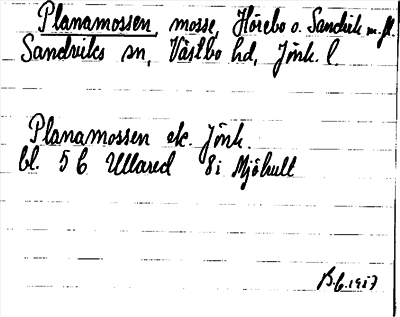 Planamossen, mosse, Hörebo o. Sandvik m.fl.
Sandviks sn, Västbo hd, Jönk. l.
Planamossen ek. Jönk.
bl. 5 C Ullared 8i Mjöhult
B.G. 1957